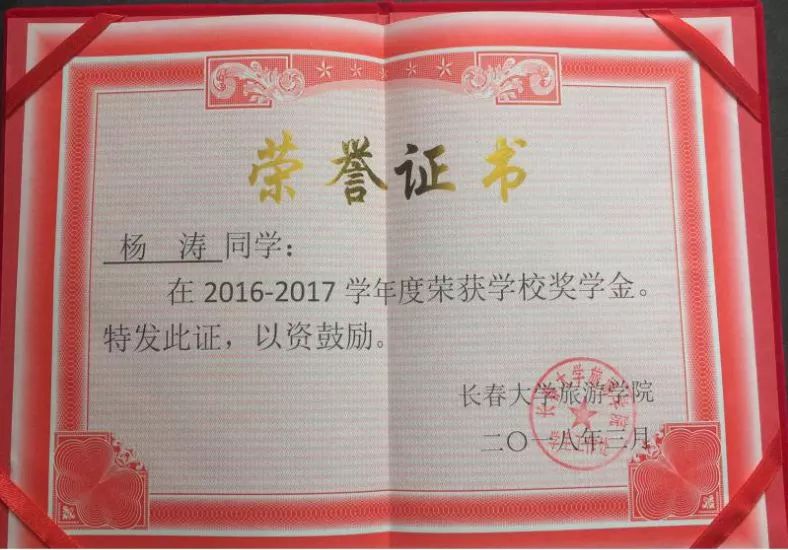 荣誉证书
杨 涛 同学：
在 2016-2017 学年度荣获学校奖学金。
特发此证，以资鼓励。
长春大学旅游学院
二〇一八年三月
长春大学旅游学院